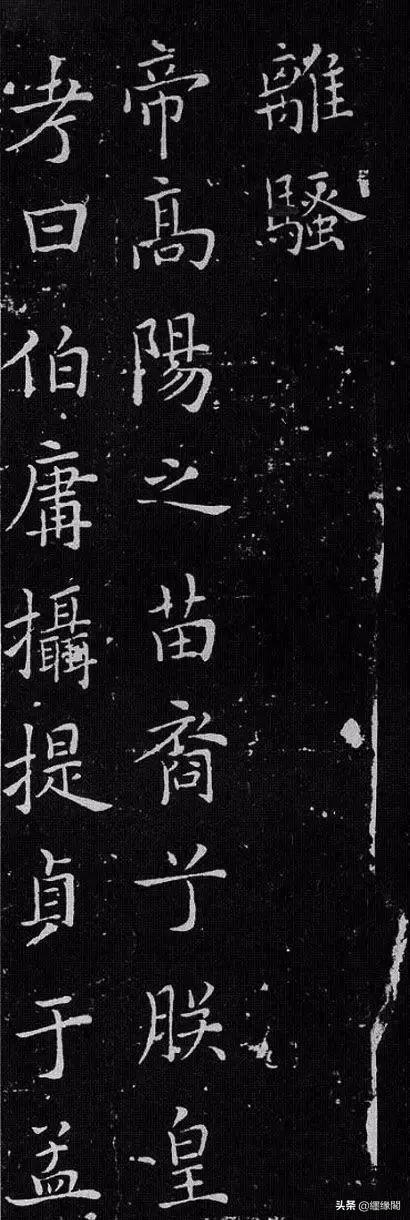 離騷
帝高陽之苗裔兮朕皇
考曰伯庸攝提貞于孟
头条 @纒缘閣